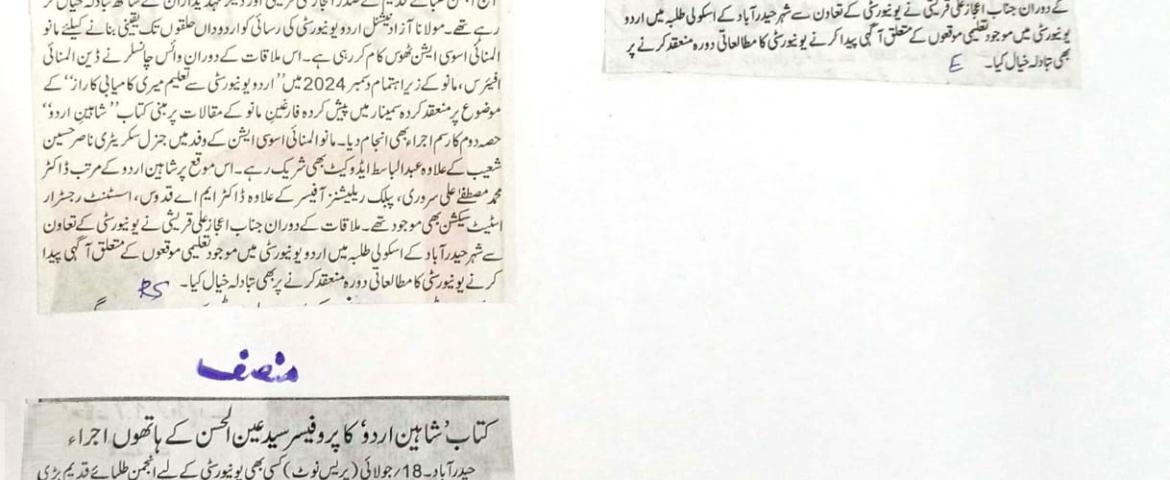 رہے تھے۔ مولانا آزاد نیشنل اردو یونیورسٹی کی رسائی کو اردو داں حلقوں تک یقینی بنانے کیلئے مانو
المنائی اسوسی ایشن ٹھوس کام کر رہی ہے۔ اس ملاقات کے دوران وائس چانسلر نے ڈین المنائی
افیئرس، مانو کے زیر اہتمام دسمبر 2024 میں ’’اردو یونیورسٹی سے تعلیم میری کامیابی کا راز‘‘ کے
موضوع پر منعقد کردہ سمینار میں پیش کردہ فارغین مانو کے مقالات پر مبنی کتاب ’’شاہین اردو‘‘
حصہ دوم کا رسم اجراء بھی انجام دیا۔ مانو المنائی اسوسی ایشن کے وفد میں جنرل سکریٹری ناصر حسین
شعیب کے علاوہ عبدالباسط ایڈوکیٹ بھی شریک رہے۔ اس موقع پر شاہین اردو کے مرتب ڈاکٹر
محمد مصطفیٰ علی سروری، پبلک ریلیشنز آفیسر کے علاوہ ڈاکٹر ایم اے قدوس، اسسٹنٹ رجسٹرار
اسٹیٹ سیکشن بھی موجود تھے۔ ملاقات کے دوران جناب اعجاز علی قریشی نے یونیورسٹی کے تعاون
سے شہر حیدرآباد کے اسکولی طلبہ میں اردو یونیورسٹی میں موجود تعلیمی موقعوں کے متعلق آگہی پیدا
کرنے یونیورسٹی کا مطالعاتی دورہ منعقد کرنے پر بھی تبادلہ خیال کیا۔
RS
منصف
کتاب ’شاہین اردو‘ کا پروفیسر سید عین الحسن کے ہاتھوں اجراء
حیدرآباد۔ 18/ جولائی (پریس نوٹ) کسی بھی یونیورسٹی کے لیے انجمن طلبائے قدیم بڑی
کے دوران جناب اعجاز علی قریشی نے یونیورسٹی کے تعاون سے شہر حیدرآباد کے اسکولی طلبہ میں اردو
یونیورسٹی میں موجود تعلیمی موقعوں کے متعلق آگہی پیدا کرنے یونیورسٹی کا مطالعاتی دورہ منعقد کرنے پر
بھی تبادلہ خیال کیا۔
E